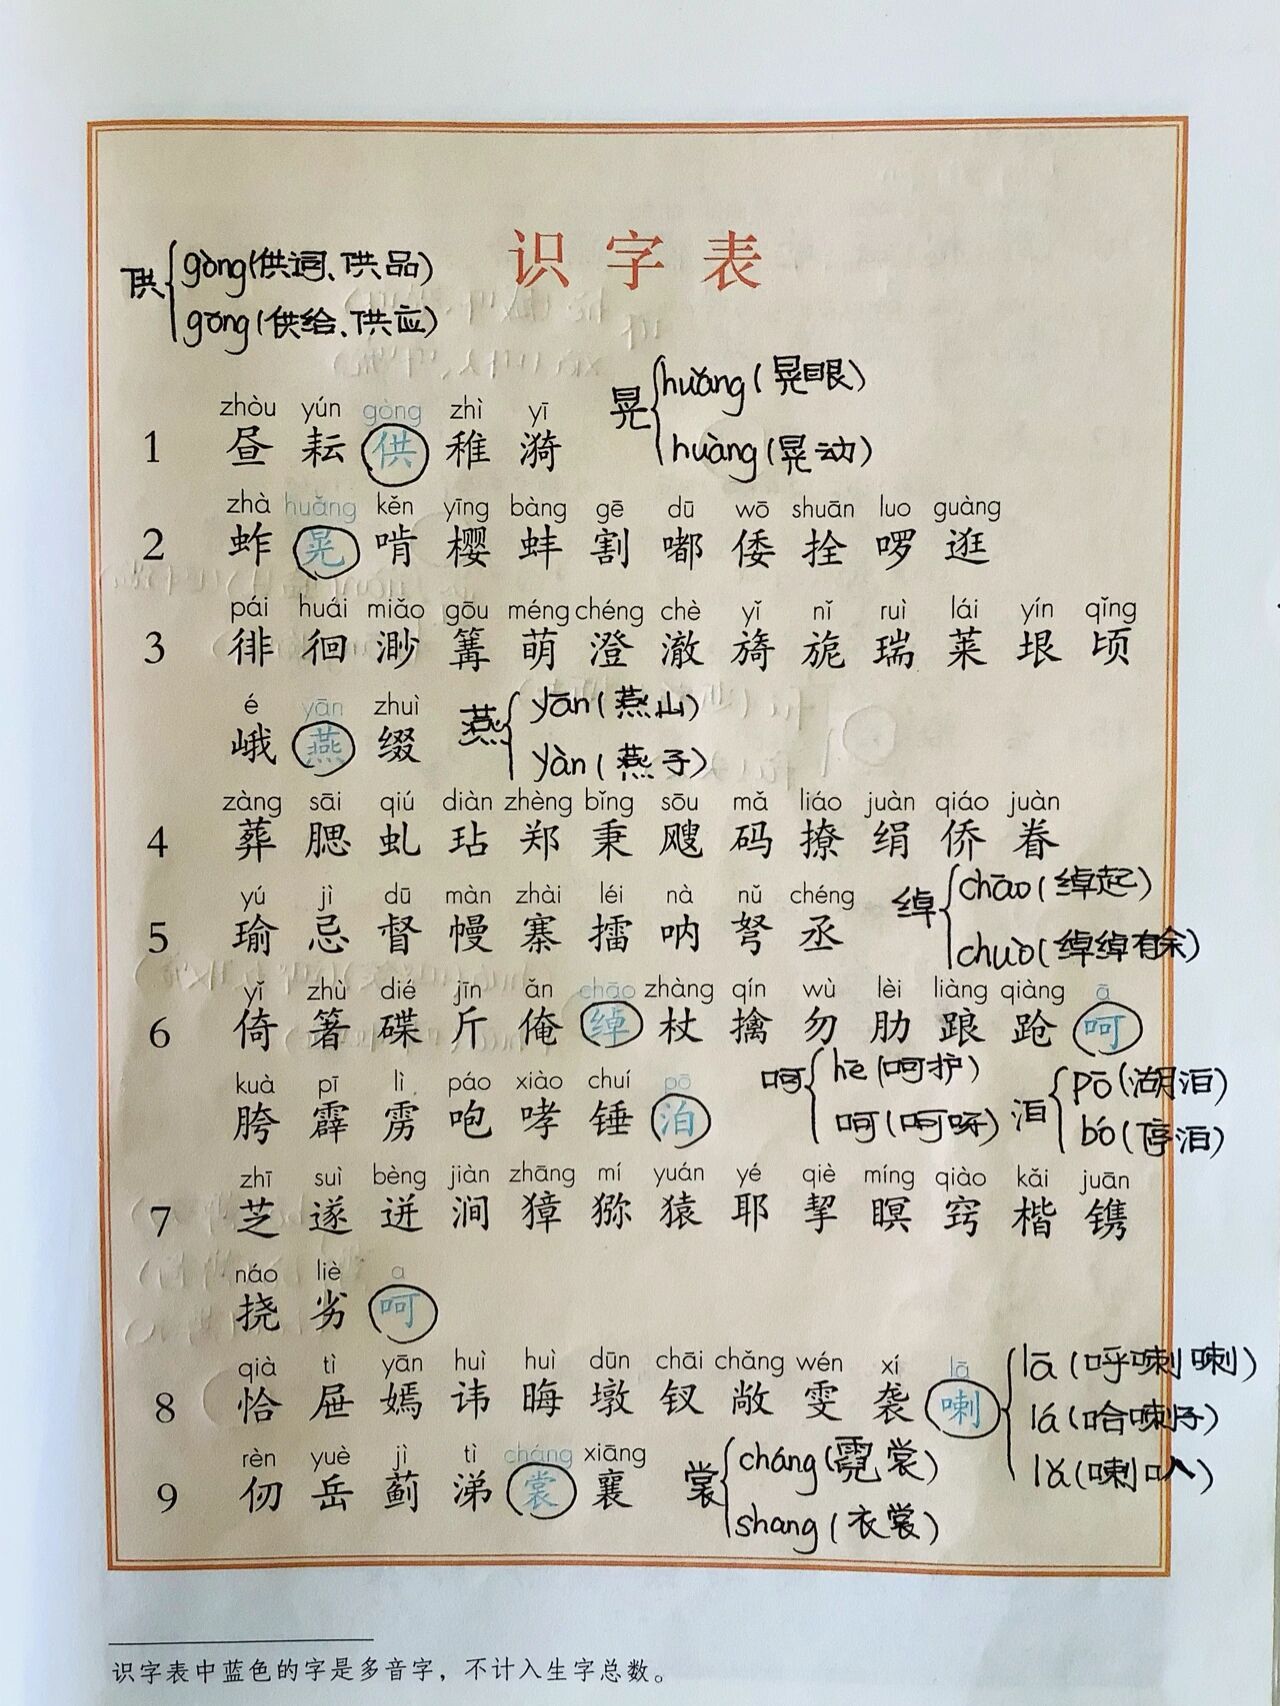 识字表
供 gòng(供词、供品)
gōng(供给、供应)
晃 huǎng(晃眼)
huàng(晃动)
zhòu yún gòng zhì yī
1 昼 耘 供 稚 漪
zhà huǎng kěn yīng bàng gē dū wō shuān luo guàng
2 蚱 晃 啃 樱 蚌 割 嘟 倭 拴 啰 逛
pái huái miǎo gōu méng chéng chè yǐ nǐ ruì lái yín qǐng
3 徘 徊 渺 篝 萌 澄 澈 旖 旎 瑞 莱 垠 顷
é yān zhuì
峨 燕 缀
燕 yān(燕山)
yàn(燕子)
zàng sāi qiú diàn zhèng bǐng sōu mǎ liáo juàn qiáo juàn
4 葬 腮 虬 玷 郑 秉 飕 码 撩 绢 侨 眷
yú jì dū màn zhài léi nà nǔ chéng
5 瑜 忌 督 幔 寨 擂 呐 弩 丞
绰 chāo(绰起)
chuò(绰绰有余)
yǐ zhù dié jīn ǎn chāo zhàng qín wù lèi liàng qiàng ā
6 倚 箸 碟 斤 俺 绰 杖 擒 勿 肋 踉 跄 呵
kuà pī lì páo xiào chuí pō
胯 霹 雳 咆 哮 锤 泊
呵 hē(呵护)
呵(呵呀)
泊 pō(湖泊)
bó(停泊)
zhī suì bèng jiàn zhāng mí yuán yé qiè míng qiào kǎi juān
7 芝 遂 迸 涧 獐 猕 猿 耶 挈 瞑 窍 楷 镌
náo liè a
挠 劣 呵
qià tì yān huì huì dūn chāi chǎng wén xí lā
8 恰 屉 嫣 讳 晦 墩 钗 敞 雯 袭 喇
lā(呼喇喇)
lá(哈喇子)
lǎ(喇叭)
rèn yuè jì tì cháng xiāng
9 仞 岳 蓟 涕 裳 襄
裳 cháng(霓裳)
shang(衣裳)
识字表中蓝色的字是多音字，不计入生字总数。